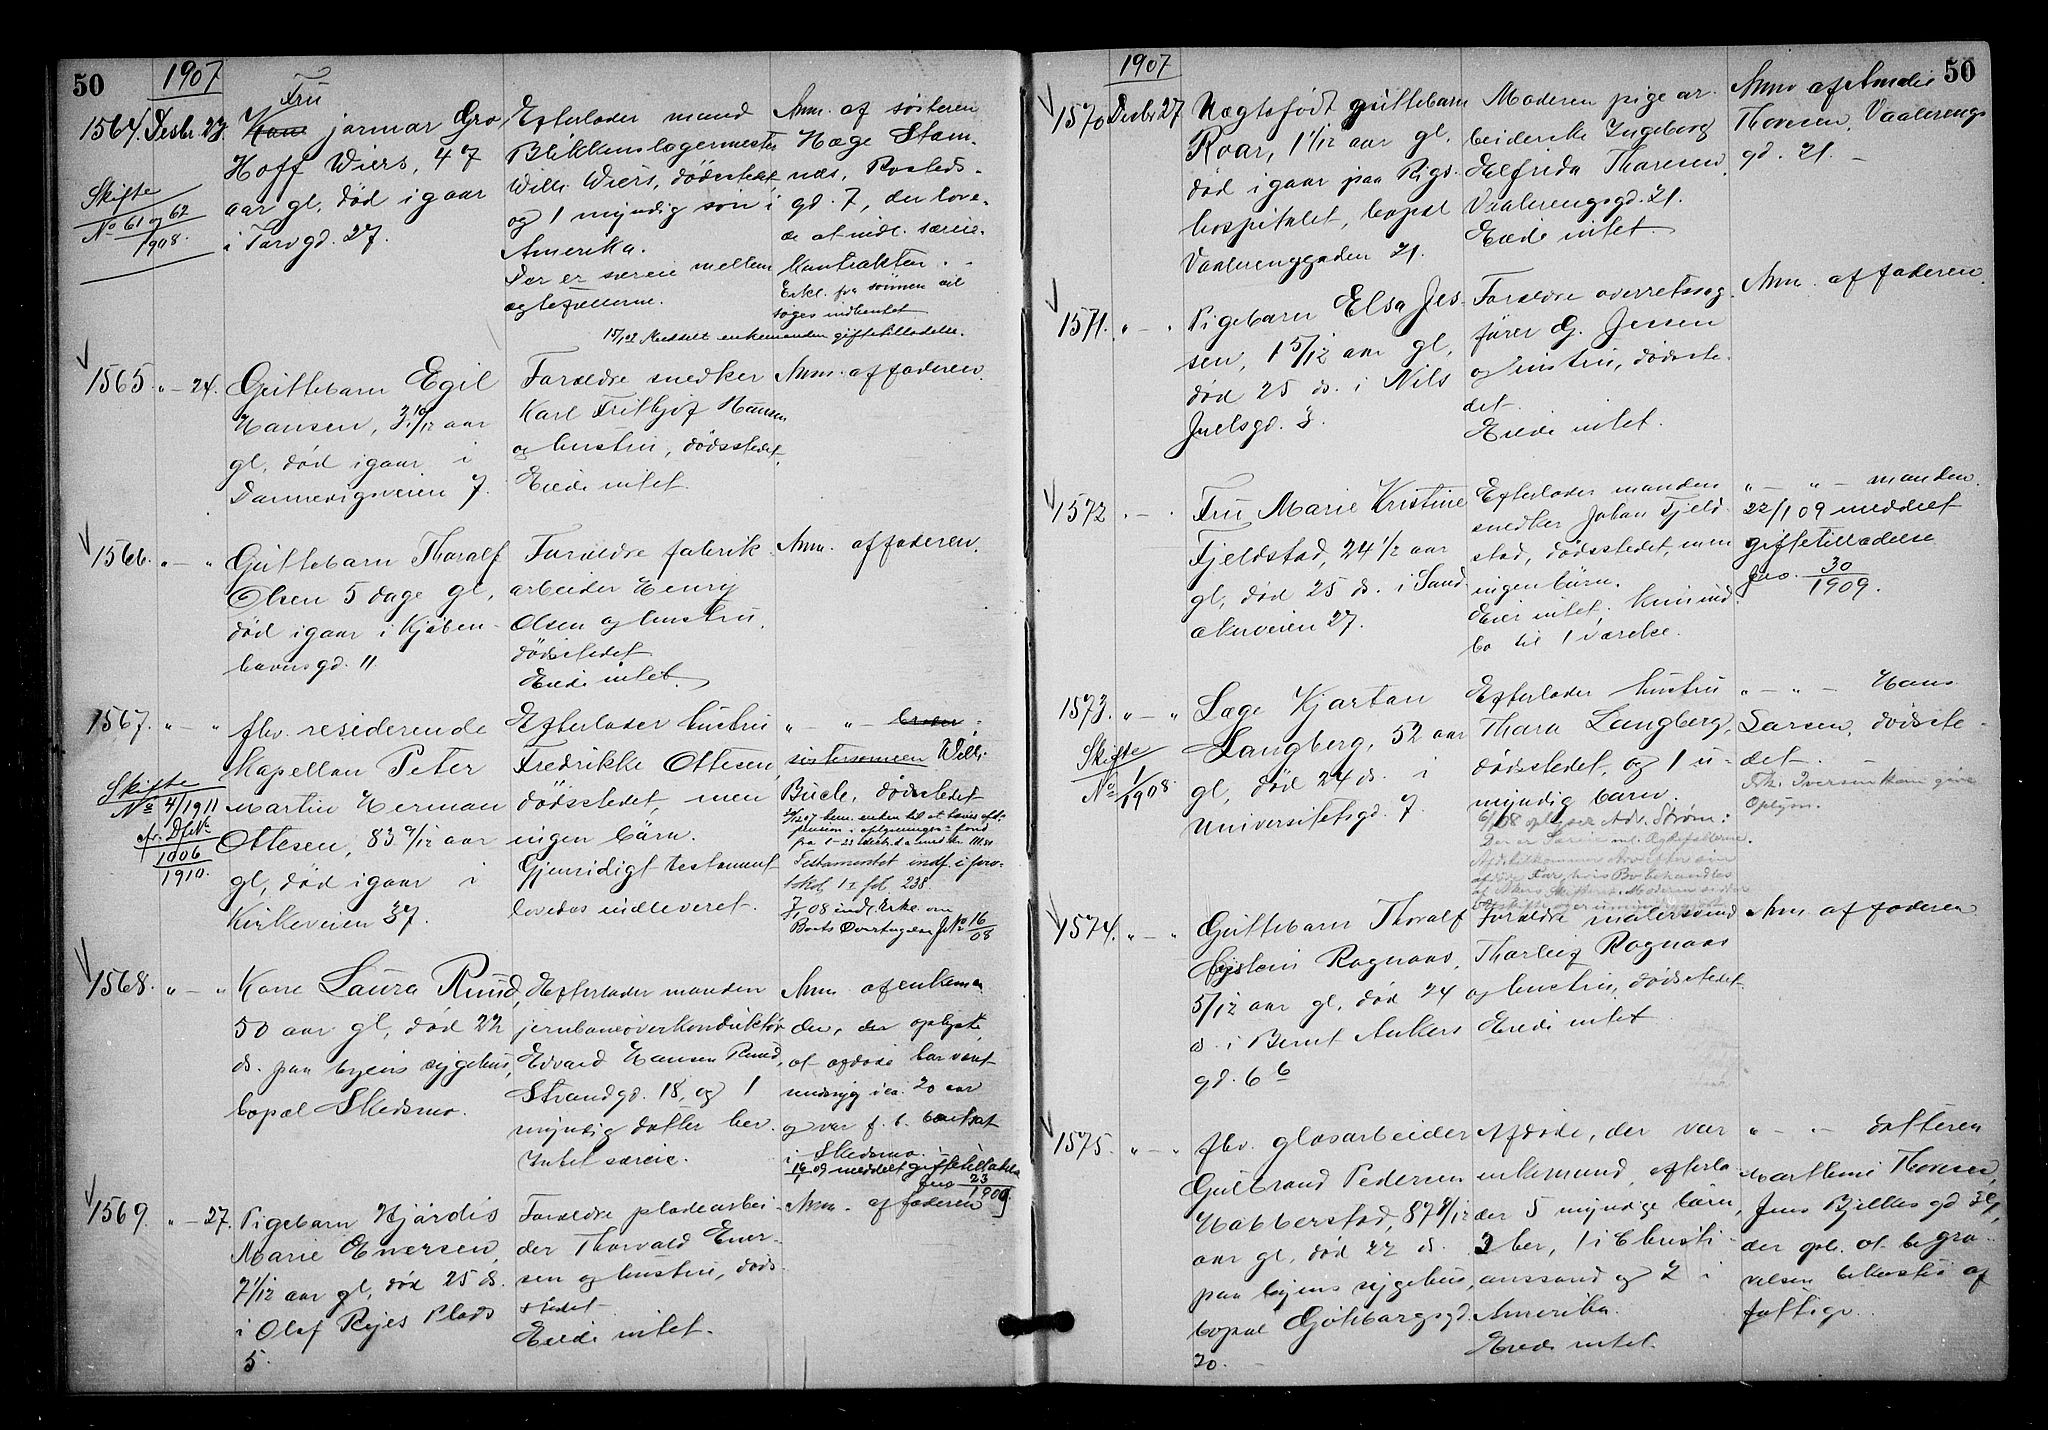 50
1907
1564. Desbr 23.
Skifte
No 61 og 62
1908.
Fru
Kone jarmar Gro
Hoff Wiers, 47
aar gl, død igaar
i Torvgd. 27.
Efterlader mand
Blikkenslagermester
Wilh. Wiers, dødsstedet
og 1 myndig søn i
Amerika.
Der er særeie mellem
ægtefællerne.
Anm. af søsteren
Hæge Stam-
næs, Rosteds-
gd. 7, der love-
de at indl. særeie-
kontrakten.
Erkl. fra sønnen vil
søges indhentet
meddelt enkemanden giftetilladelse.
1565. " — 24.
Guttebarn Egil
Hansen, 3 10/12 aar
gl, død igaar i
Dannevigsveien 7.
Forældre snedker
Karl Frithjof Hansen
og hustru, dødsstedet.
Eiede intet.
Anm. af faderen.
1566. " — "
Guttebarn Thoralf
Olsen 5 dage gl,
død igaar i Kjøben-
havnsgd. 11
Forældre fabrik-
arbeider Henry
Olsen og hustru,
dødsstedet
Eiede intet.
Anm. af faderen.
1567. " — "
Skifte
No 4/1911
1006
1910.
fhv. residerende
Kapellan Peter
Martin Herman
Ottesen, 83 9/12 aar
gl, død igaar i
Kirkeveien 37.
Efterlader hustru
Fredrikke Ottesen,
dødsstedet, men
ingen børn.
Gjensidigt testament
lovedes indleveret.
" — " — broder
søstersønnen Wilh.
Bucle, dødsstedet
Testamentet indf. i pro-
tokol 12 fol. 238.
7/1 08 indl. Erkl. om
Boets Overtagelse JNo 16
08
1568. " — "
Kone Laura Ruud,
50 aar gl, død 22
ds. paa byens sygehus,
bopæl Skedsmo.
Efterlader manden
jernbaneoverkonduktør
Edvard Hansen Ruud,
Strandgd. 18, og 1
myndig datter her.
Intet særeie.
Anm. af enkeman-
den, der oplyste,
at afdøde har været
sindssyg i ca. 20 aar
og var f. t. bortsat
i Skedsmo.
meddelt giftetilladelse
Jno 23
1909
1569. " — 27.
Pigebarn Hjørdis
Marie Enersen,
7/12 aar gl, død 25 ds.
i Olaf Ryes Plads
5.
Forældre pladearbei-
der Thorvald Ener-
sen og hustru, døds-
stedet.
Eiede intet.
Anm. af faderen
50
1907
1570. Desbr 27
Uægtefødt guttebarn
Roar, 1 1/12 aar gl,
død igaar paa Rigs-
hospitalet, bopæl
Vaalerenggaden 21.
Moderen pige ar-
beiderske Ingeborg
Elfrida Thoresen,
Vaalerengsgd. 21.
Eiede intet.
Anm af Amalie
Thoresen, Vaalerengs
gd. 21. —
1571. " — "
Pigebarn Elsa Jes-
sen, 1 5/12 aar gl,
død 25 ds. i Nils
Juelsgd. 3.
Forældre overretssag-
fører G. Jessen
og hustru, dødsste-
det.
Eiede intet.
Anm. af faderen.
1572. — "
Fru Marie Kristine
Fjeldstad, 24 1/2 aar
gl, død 25 ds. i Sand-
akerveien 27.
Efterlader manden
snedker Johan Fjeld-
stad, dødsstedet, men
ingen børn.
Eier intet, kun ind-
bo til 1 værelse.
" — " — manden.
22/1 09 meddelt
giftetilladelse
Jno. 30
1909.
1573. " — "
Skifte
No 1
1908.
Sage Kjartan
Langberg, 52 aar
gl, død 24 ds. i
Universitetsgd. 7
Efterlader hustru
Thora Langberg,
dødsstedet, og 1 u-
myndig barn.
6/1 08 oplyser Adv. Strøm:
Der er Særeie ml. Ægtefællerne.
" — " — Hans
Larsen, dødsste-
det.
Frk. Iversen kan give
Oplysn.
1574. " — "
Guttebarn Thoralf
Øistein Rognaas,
5/12 aar gl, død 24
ds. i Bernt Ankers
gd. 6 b
Forældre malersvend
Thorleif Rognaas
og hustru, dødsstedet.
Eiede intet
Anm. af faderen
1575. " — "
fhv. glasarbeider
Gulbrand Pedersen
Habberstad, 87 8/12
aar gl, død 22 ds.
paa byens sygehus,
bopæl Gøteborgsgd.
20.
Afdøde, der var
enkemand, efterla-
der 5 myndige børn,
2 her, 1 i Christi-
anssand og 2 i
Amerika.
Eiede intet.
" — " — datteren
Marthine Thoresen,
Jens Bjelkes gd 31,
der opl. at begra-
velsen bekostes af
fattigv.